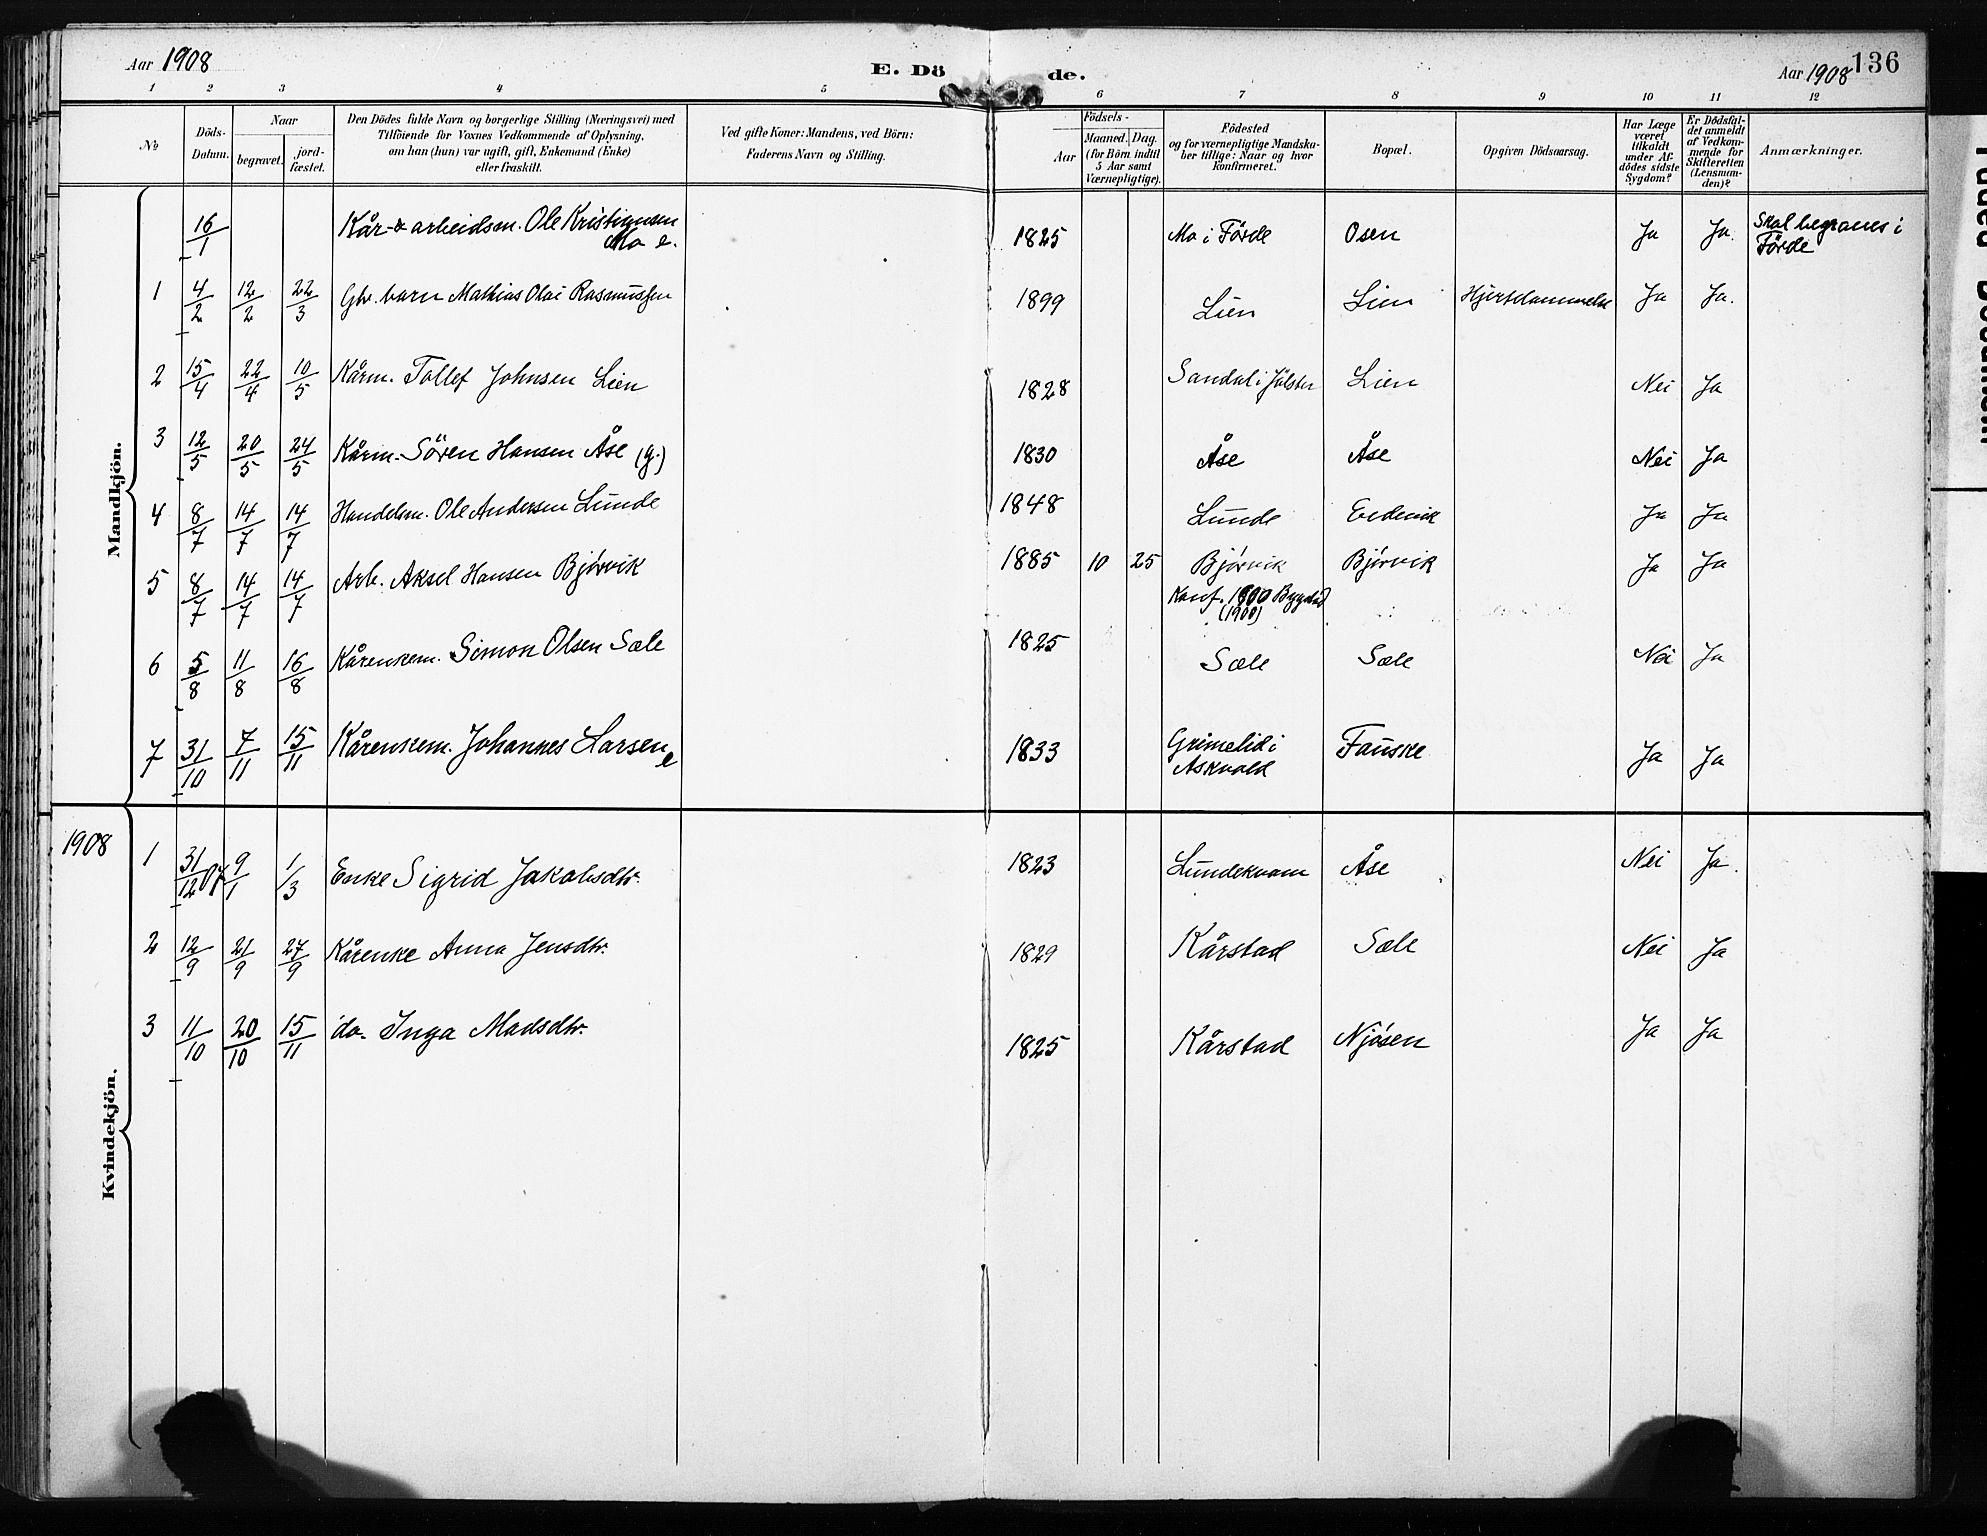 Aar 1908
E. Dö de.
Aar 1908 136
1 2 3 4 5 6 7 8 9 10 11 12
№
Döds-Datum.
Naar
begravet.
jord-fæstet.
Den Dödes fulde Navn og borgerlige Stilling (Næringsvei) med
Tilföiende for Voxnes Vedkommende af Oplysning,
om han (hun) var ugift, gift, Enkemand (Enke)
eller fraskilt.
Ved gifte Koner: Mandens, ved Börn:
Faderens Navn og Stilling.
Födsels-
Aar
Maaned. Dag.
(for Börn indtil
5 Aar samt
Værnepligtige).
Födested
og for værnepligtige Mandska-
ber tillige: Naar og hvor
konfirmeret.
Bopæl.
Opgiven Dödsaarsag.
Har Læge
været
tilkaldt
under Af-
dödes sidste
Sygdom?
Er Dödsfal-
det anmeldt
af Vedkom-
mende for
Skifteretten
(Lensman-
den)?
Anmærkninger.
Mandkjön.
16/1 Kår- & arbeidsm. Ole Kristiansen Mo e. 1825 Mo i Förde Osen Ja Ja. Skal begraves i Förde
1 4/2 12/2 22/3 Gbr. barn Mathias Olai Rasmussen 1899 Lien Lien Hjertelammelse Ja Ja.
2 15/4 22/4 10/5 Kårm. Tollef Johnsen Lien 1828 Sandal i Jölster Lien Nei Ja
3 12/5 20/5 24/5 Kårm. Sören Hansen Åse (g.) 1830 Åse Åse Nei Ja
4 8/7 14/7 14/7 Handelsm. Ole Andersen Lunde 1848 Lunde Erdevik Ja Ja
5 8/7 14/7 14/7 Arb. Aksel Hansen Bjørvik 1885 10 25 Bjørvik Bjørvik Ja Ja
Konf. 1900 Bygstad
(1900)
6 5/8 11/8 16/8 Kårenkem. Simon Olsen Sæle 1825 Sæle Sæle Nei Ja
7 31/10 7/11 15/11 Kårenkem. Johannes Larsen e 1833 Grimelid i Askvold Fauske Ja Ja
Kvindekjön.
1908
1 31/12 07 9/1 1/3 Enke Sigrid Jakobsdtr. 1823 Lundekvam Åse Nei Ja.
2 12/9 21/9 27/9 Kårenke Anna Jensdtr. 1829 Kårstad Sæle Nei Ja
3 11/10 20/10 15/11 do. Inga Madsdtr. 1825 Kårstad Njøsen Ja Ja